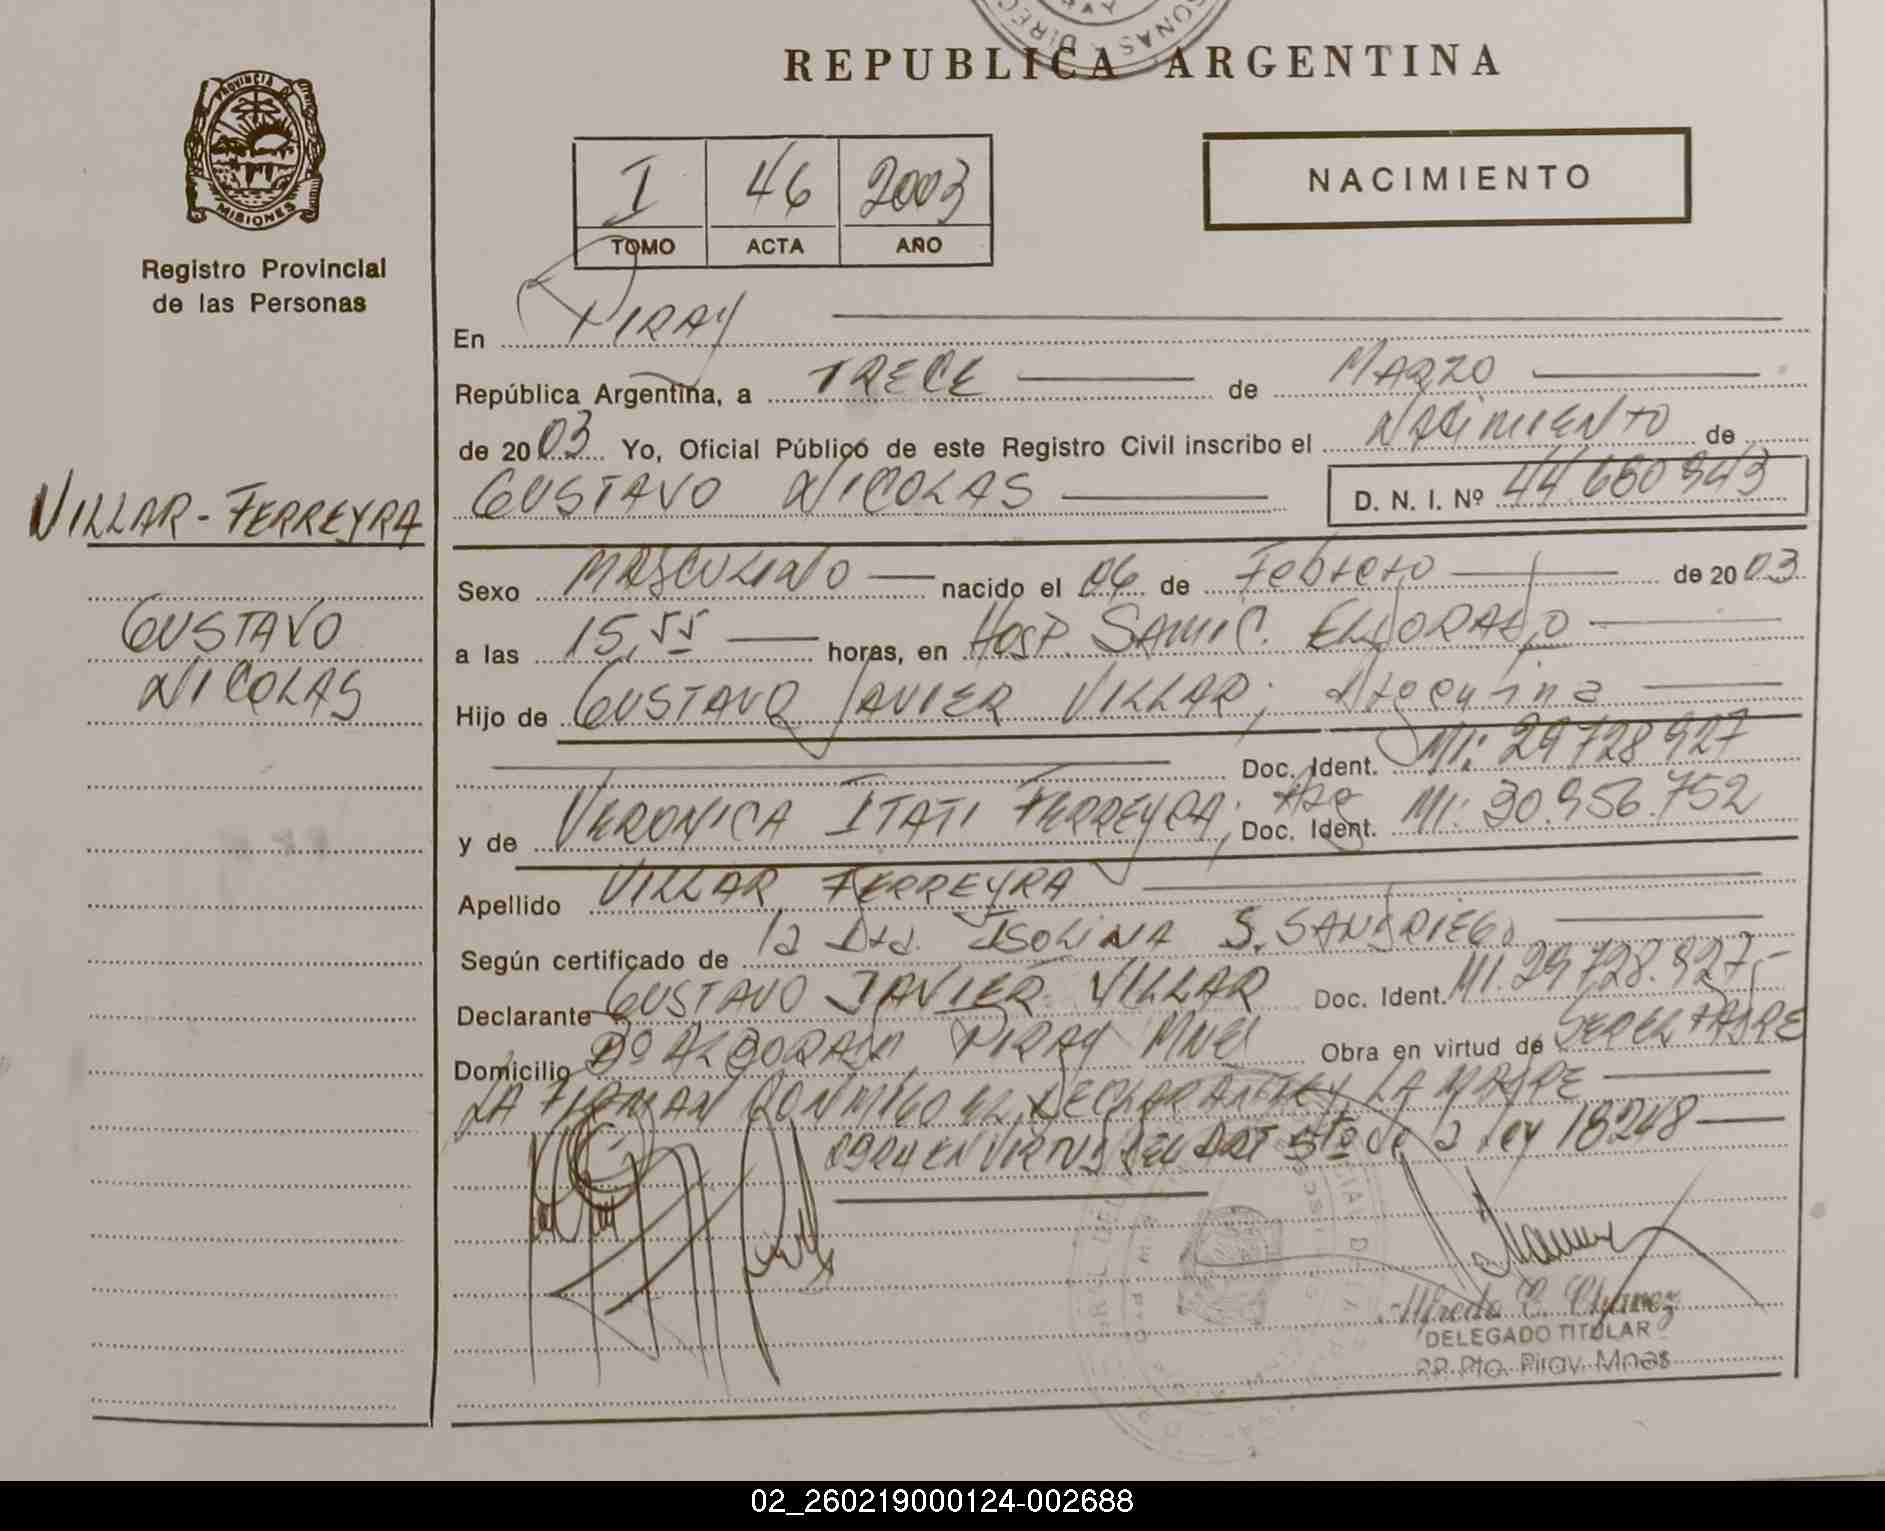 REPUBLICA ARGENTINA
PROVINCIA DE
MISIONES
Registro Provincial
de las Personas
I 46 2003
TOMO ACTA AÑO
NACIMIENTO
En PIRAY
República Argentina, a TRECE de MARZO
de 2003 Yo, Oficial Público de este Registro Civil inscribo el NACIMIENTO de
GUSTAVO NICOLAS D. N. I. Nº 44.680943
VILLAR - FERREYRA
GUSTAVO
NICOLAS
Sexo MASCULINO nacido el 06 de Febrero de 2003
a las 15,55 horas, en HOSP. SAMIC. ELDORADO
Hijo de GUSTAVO JAVIER VILLAR; Argentina
Doc. Ident. MI: 29728927
y de VERONICA ITATI FERREYRA; Arg Doc. Ident. MI: 30.956.752
Apellido VILLAR FERREYRA
Según certificado de la Dra. ISOLINA S. SANDRIEGO
Declarante GUSTAVO JAVIER VILLAR Doc. Ident. MI. 29728.927,-
Domicilio Bº ALBORADA PIRAY MNES Obra en virtud de SER EL PADRE
LA FIRMAN CONMIGO EL DECLARANTE Y LA MADRE
OBRA EN VIRTUD DEL ART 5to de la Ley 18248
Alfredo C. Chavez
DELEGADO TITULAR
Pto. Piray Mnes
02_260219000124-002688